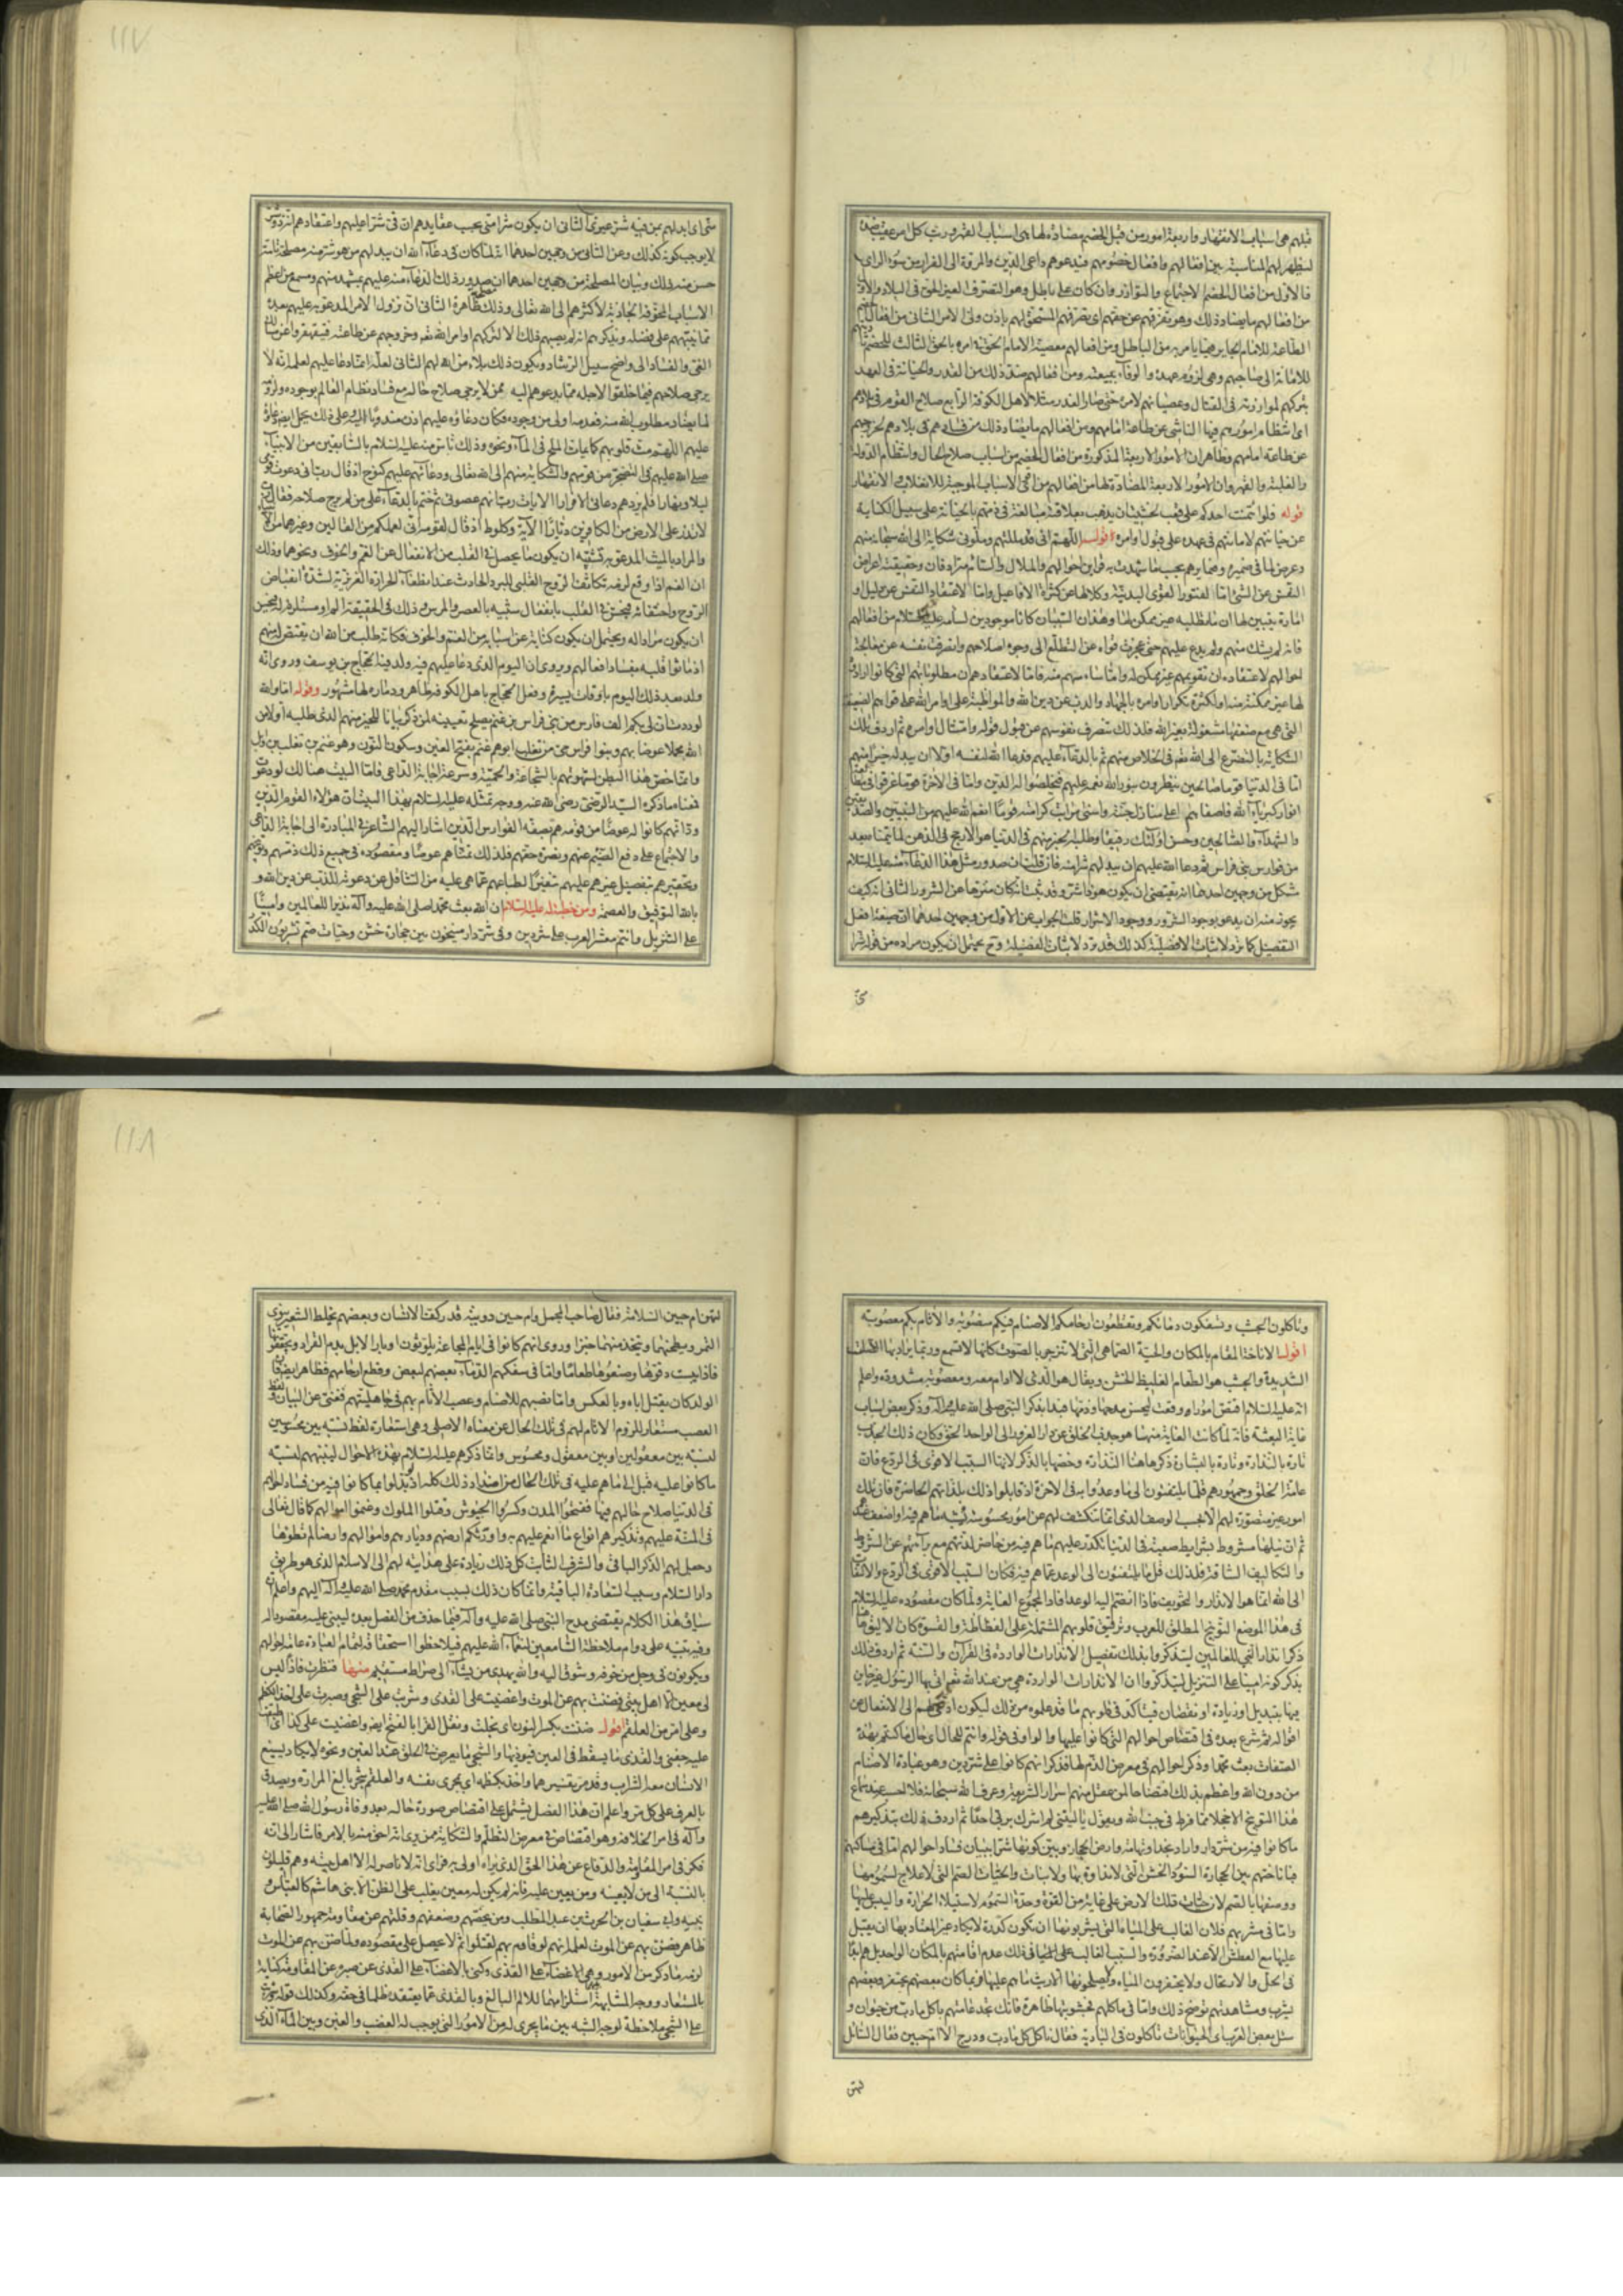 قبلهم هى اسباب الانقهار واربعة امور من قبل الخصم مضادة لها هى اسباب القهر ورتب كل امر عقيب ضده
ليظهر لهم المناسبة بين افعالهم وافعال خصومهم فيدعوهم داعى الدين والمروة الى الفرار من سوء الراى
فالاول من افعال الخصم الاجتماع والتوازر وان كان على باطل وهو التصرف الغير الحق فى البلاد
من افعالهم ما يضاد ذلك وهو تفرقهم عن حقهم اى تصرفهم المستحق لهم باذن ولى الامر الثانى من افعال
الطاعة للامام الجاير فيما يامر به من الباطل ومن افعالهم معصية الامام الحق فى امره بالحق الثالث للخصم
للامانة الى صاحبهم وهى لزوم عهده والوفاء ببيعته ومن افعالهم ضد ذلك من الغدر والخيانة فى العهد
بتركهم لموازرته فى القتال وعصيانهم لامره حتى صار الغدر مثلا لاهل الكوفة الرابع صلاح القوم فى بلادهم
اى انتظام امورهم فيها الناشى عن طاعة امامهم ومن افعالهم ما يضاد ذلك من فسادهم فى بلادهم لخروجهم
عن طاعة امامهم وظاهر ان الامور الاربعة المذكورة من افعال الخصم من اسباب صلاح الحال وانتظام الدولة
والغلبة والقهر وان الامور الاربعة المضادة لها من افعالهم من اقوى الاسباب الموجبة للانفلات والانقهار
قوله فلو ائتمنت احدكم على قعب لخشيت ان يذهب بعلاقته مبالغة فى ذمهم بالخيانة على سبيل الكناية
عن خيانتهم لامانتهم فى عهده على قبول اوامره قوله اللهم انى قد مللتهم وملونى شكاية الى الله سبحانه منهم
وعرض لما فى ضميره وضمايرهم بحسب ما شهدت به قراين احوالهم والملال والسآمة مترادفان وحقيقته اعراض
النفس عن الشى اما لفتور القوى البدنية وكلالها عن كثرة الافاعيل واما لاعتقاد النفس عن دليل او
امارة يتبين لها ان ما تطلبه غير ممكن لها وهذان السببان كانا موجودين لسآمه عليه السلام من افعالهم
فانه لم يشك منهم ولم يدع عليهم حتى عجزت قواه عن التطلع الى وجوه اصلاحهم وانصرفت نفسه عن معالجة
احوالهم لاعتقاده ان تقويمهم غير ممكن له واما سآمتهم منه فاما لاعتقادهم ان مطلوباتهم التى كانوا ارادوه
لها غير ممكنة منه او لكثرة تكرار اوامره بالجهاد والذب عن دين الله والمواظبة على اوامر الله على قواهم الضعيفة
التى هى مع ضعفها مشغولة بغير الله فلذلك تنصرف نفوسهم عن قبول قوله وامتثال اوامره ثم اردف تلك
الشكاية بالتضرع الى الله تعم فى الخلاص منهم ثم بالدعاء عليهم فدعا الله لنفسه اولا ان يبدله خيرا منهم
اما فى الدنيا قوما صالحين ينظرون بنور الله نعم عليهم فيخلصوا له الدين واما فى الاخرة قوما غرقوا فى
انوار كبرياء الله فاصفاهم اعلى منازل جنته واسنى مراتب كرامته قوما انعم الله عليهم من النبيين والصديقين
والشهداء والصالحين وحسن اولئك رفيقا وطلبه لخير منهم فى الدنيا هو الارجح فى الذهن لما يتمنا بعد
من فوارس بنى فراس ثم دعا الله عليهم ان يبدلهم شرا منه فان قلت ان صدور مثل هذا الدعاء منه عليه السلام
مشكل من وجهين احدهما انه يقتضى ان يكون هو ذا شر وقد ثبت انه كان منزها عن الشرور الثانى انه كيف
يجوز منه ان يدعو بوجود الشرور ووجود الاشرار قلت الجواب عن الاول من وجهين احدهما ان صيغة افعل
التفضيل كما ترد لاثبات الافضلية كذلك قد ترد لاثبات الفضيلة وح يحتمل ان يكون مراده من قوله شرا
منى
منى اى ابدلهم بمن فيه شر غيرى الثانى ان يكون شرا منى بحسب عقايدهم ان فى شرا عليهم واعتقادهم
لا يوجب كونه كذلك وعن الثانى من وجهين احدهما انه لما كان فى دعاء الله ان يبدلهم من هو شر منه مصلحة تامة
حسن منه ذلك وبيان المصلحة من وجهين احدهما ان صدور ذلك الدعاء منه عليهم بمشهد منهم ومسمع من اعظم
الاسباب المخوفة الجاذبة لاكثرهم الى الله تعالى وذلك مصلحة ظاهرة الثانى ان نزول الامر المدعو به عليهم بعده
مما ينبههم على فضله ويذكرهم انه لم يصبهم ذلك الا لتركهم اوامر الله تعم وخروجهم عن طاعته فيتقهقروا عن مسالك
الغى والفساد الى واضح سبيل الرشاد ويكون ذلك بلاء من الله لهم الثانى لعله انما دعا عليهم لعلمه انه لا
يرجى صلاحهم فيما خلقوا لاجله مما يدعوهم اليه ومن لا يرجى صلاح حاله مع فساد نظام العالم بوجوده
لما يضاد مطلوب الله منه فعدمه اولى من وجوده فكان دعاؤه عليهم اذن مندوبا اليه وعلى ذلك يحمل ايض
عليهم اللهم مث قلوبهم كما يماث الملح فى الماء ونحوه وذلك تاس منه عليه السلام بالسابقين من الانبياء
صلى الله عليهم فى التضجر من قومهم والشكاية منهم الى الله تعالى ودعائهم عليهم كنوح اذ قال رب انى دعوت قومى
ليلا ونهارا فلم يزدهم دعائى الا فرارا الايات رب انهم عصونى ثم ختم بالدعاء على من لم يرج صلاحه فقال رب
لا تذر على الارض من الكافرين ديارا الاية وكلوط اذ قال لقومه انى لعملكم من القالين وغيرهما من
والمراد بالميث المدعو به يشبه ان يكون ما يحصل فى القلب من الانفعال عن الغم والخوف ونحوهما وذلك
ان الغم اذا وقع لزمه تكاثف الروح القلبى للبرد الحادث عند انطفاء الحرارة الغريزية لشدة انقباض
الروح واختناقه فيحس فى القلب بانفعال شبيه بالعصر والمرس وذلك فى الحقيقة الم او مستلزم له فيحسن
ان يكون مرادا له ويحتمل ان يكون كناية عن اسبابه من الغم والخوف فكانه طلب من الله ان يقتص له منهم
اذ ماثوا قلبه بفساد افعالهم ويروى ان اليوم الذى دعا عليهم فيه ولد فيه الحجاج بن يوسف وروى انه
ولد بعد ذلك اليوم باوقات يسيرة وفعل الحجاج باهل الكوفة ظاهر ودماره لها مشهور وقوله اما والله
لوددت ان لى بكم الف فارس من بنى فراس بن غنم يصلح تعيينه لمن ذكر بيانا للخير منهم الذى طلبه اولا من
الله مجملا عوضا بهم وبنوا فراس حى من تغلب ابوهم غنم بفتح الغين وسكون النون وهو غنم بن تغلب بن وايل
وانما خص هذا البطن لشهرتهم بالشجاعة والحمية وسرعة اجابة الداعى فاما البيت هنالك لو دعوت
فمعناه ما ذكره السيد الرضى رضى الله عنه ووجه تمثله عليه السلام بهذا البيت ان هؤلاء القوم الذين
ود انهم كانوا له عوضا من قومه هم بصفة الفوارس الذين اشار اليهم الشاعر فى المبادرة الى اجابة الداعى
والاجتماع على دفع الضيم عنهم ونصرة حقهم فلذلك تمناهم عوضا ومقصوده فى جميع ذلك ذمهم وتوبيخهم
وتحقيرهم بتفضيل غيرهم عليهم تنفيرا لطباعهم عما هى عليه من التثاقل عن دعوته للذب عن دين الله و
بالله التوفيق والعصمة ومن خطبة له عليه السلام ان الله بعث محمدا صلى الله عليه وآله نذيرا للعالمين وامينا
على التنزيل وانتم معشر العرب على شر دين وفى شر دار منيخون بين حجارة خشن وحيات صم تشربون الكدر
وتاكلون الجشب وتسفكون دماءكم وتقطعون ارحامكم الاصنام فيكم منصوبة والاثام بكم معصوبة
اقول الاناخة المقام بالمكان والحية الصماء هى التى لا تنزجر بالصوت كانها لا تسمع وربما يراد بها الصلبة
الشديدة والجشب هو الطعام الغليظ الخشن ويقال هو الذى لا ادام معه ومعصوبة مشدودة واعلم
انه عليه السلام اقتص امورا وقعت ليحسن مدحها وذمها فبدا بذكر النبى صلى الله عليه وآله وذكر بعض اسباب
غاية البعثة فانه لما كانت الغاية منها هو جذب الخلق عن دار الغرور الى الواحد الحق وكان ذلك الجذب
تارة بالنذارة وتارة بالبشارة ذكر هاهنا النذارة وخصها بالذكر لانها السبب الاقوى فى الردع فان
عامة الخلق وجمهورهم قلما يلتفتون الى ما وعدوا به فى الاخرة اذ قابلوا ذلك بلذاتهم الحاضرة فان تلك
امور غير متصورة لهم الا بحسب الوصف الذى انما تنكشف لهم عن امور محسوسة يشبه ما هم فيه او اضعف عندهم
ثم ان نيلها مشروط بشرايط صعبة فى الدنيا تكدر عليهم ما هم فيه من حاضر لذتهم مع برآئتهم عن الشروط
والتكاليف الشاقة فلذلك قل ما يلتفتون الى الوعد عما هم فيه فكان السبب الاقوى فى الردع والالتفات
الى الله انما هو الانذار والتخويف فاذا انضم اليه الوعد افاد المجموع الغاية ولما كان مقصوده عليه السلام
فى هذا الموضع التوبيخ المطلق للعرب وترقيق قلوبهم المشتملة على الفظاظة والقسوة كان الاليق هنا
ذكر انذار النبى للعالمين ليتذكروا بذلك تفصيل الانذارات الواردة فى القرآن والسنة ثم اردف ذلك
بذكر كونه امينا على التنزيل ليتذكروا ان الانذارات الواردة هى من عند الله تعم اتى بها الرسول غير خاين
فيها بتبديل او زيادة او نقصان فيتاكد فى قلوبهم ما قد علموه من ذلك ليكون ادعى لهم الى الانفعال عن
اقواله ثم شرع بعده فى اقتصاص احوالهم التى كانوا عليها والواو فى قوله وانتم للحال اى حال ما كنتم بهذه
الصفات بعث محمدا وذكر احوالهم فى معرض الذم لها فذكر انهم كانوا على شر دين وهو عبادة الاصنام
من دون الله واعظم بذلك اقتضاحا لمن عقل منهم اسرار الشريعة وعرف الله سبحانه فلا احسبه عند سماع
هذا التوبيخ الا خجلا مما فرط فى جنب الله ويقول يا ليتنى لم اشرك بربى احدا ثم اردف ذلك بتذكيرهم
ما كانوا فيه من شر دار واراد نجدا وتهامة وارض الحجاز وبين كونها شرا ببيان فساد احوالهم اما فى مساكنهم
فاناختهم بين الحجارة السود الخشن التى لا نداوة بها ولا نبات والحيات الصم التى لا علاج لسمومها
ووصفها بالصم لان حيات تلك الارض على غاية من القوة وحدة السموم لاستيلاء الحرارة واليبس عليها
واما فى مشربهم فلان الغالب على المياه التى يشربونها ان تكون كدرة لا يكاد غير المعتاد بها ان يقبل
عليها مع العطش الا عند الضرورة والسبب الغالب على المياه فى ذلك عدم اقامتهم بالمكان الواحد بل هم ابدا
فى الحل والارتحال ولا يحتفرون المياه ولا يصلحونها الا ريث ما هم عليها فربما كان بعضهم يحتفر وبعضهم
يشرب ومشاهدتهم توضح ذلك واما فى ماكلهم فجشوبتها ظاهرة فانك تجد عامتهم ياكل ما دب من حيوان و
سئل بعض العرب اى الحيوانات تاكلون فى البادية فقال ناكل كل ما دب ودرج الا ام حبين فقال السائل
لتهن
لتهن ام حبين السلامة فقال صاحب المجمل وام حبين دويبة قدر كف الانسان وبعضهم يخلط الشعر بنوى
التمر ويطحنهما ويتخذ منهما خبزا وروى انهم كانوا فى ايام المجاعة يلوثون اوبار الابل بدم القراد ويجففونها
فاذا يبست دقوها وصنعوها طعاما واما فى سفكهم الدماء بعضهم لبعض وقطع ارحامهم فظاهر ايض فان
الولد كان يقتل اباه وبالعكس واما نصبهم للاصنام وعصب الاثام بهم فى جاهليتهم فغنى عن البيان ولفظ
العصب مستعار للزوم الاثام لهم فى تلك الحال عن معناه الاصلى وهى استعارة لفظ نسبة بين محسوسين
لنسبة بين معقولين او بين معقول ومحسوس وانما ذكرهم عليه السلام بهذه الاحوال لينبههم لنسبة
ما كانوا عليه قبل الى ما هم عليه فى تلك الحال من اضداد ذلك كله اذ بدلوا بما كانوا فيه من فساد احوالهم
فى الدنيا صلاح حالهم فيها ففتحوا المدن وكسروا الجيوش وقتلوا الملوك وغنموا اموالهم كما قال تعالى
فى المنة عليهم وتذكيرهم انواع ما انعم عليهم به واورثكم ارضهم وديارهم واموالهم وارضا لم تطؤها
وحصل لهم الذكر الباقى والشرف الثابت كل ذلك زيادة على هدايته لهم الى الاسلام الذى هو طريق
دار السلام وسبب السعادة الباقية وانما كان ذلك بسبب مقدم محمد صلى الله عليه وآله اليهم واعلم ان
سياق هذا الكلام يقتضى مدح النبى صلى الله عليه وآله فيما حذف من الفصل بعده ليبنى عليه مقصود له
وفيه تنبيه على دوام ملاحظة السامعين لنعماء الله عليهم فيلاحظوا استحقاقه لتمام العبادة
ويكونون فى وجل من خوفه وشوق اليه والله يهدى من يشاء الى صراط مستقيم منها فنظرت فاذا ليس
لى معين الا اهل بيتى فضننت بهم عن الموت واغضيت على القذى وشربت على الشجى وصبرت على اخذ الكظم
وعلى امر من العلقم اقول ضننت بكسر النون اى بخلت ونقل الفراء بالفتح ايض واغضيت على كذا اى اطبقت
عليه جفنى والقذى ما يسقط فى العين فيؤذيها والشجى ما يعرض فى الحلق عند الغبن ونحوه لا يكاد يسيغ
الانسان معه الشراب وقد مر تفسيرهما واخذ بكظمه اى بمجرى نفسه والعلقم شجر بالغ المرارة ويصدق
بالعرف على كل مر واعلم ان هذا الفصل يشتمل على اقتصاص صورة حاله بعد وفاة رسول الله صلى الله عليه
وآله فى امر الخلافة وهو اقتصاص فى معرض التظلم والشكاية ممن يرى انه احق منه بالامر فاشار الى انه
فكر فى امر المقاومة والدفاع عن هذا الحق الذى يراه اولى به فراى انه لا ناصر له الا اهل بيته وهم قليلون
بالنسبة الى من لا يعينه ومن يعين عليه فانه لم يكن له معين يغلب على الظن الا بنى هاشم كالعباس و
بنيه وابى سفيان بن الحرث بن عبد المطلب ومن يخصهم وضعفهم وقلتهم عن مقاومة جمهور الصحابة
ظاهر فضن بهم عن الموت لعلمه انهم لو قاوم بهم لقتلوا ثم لا يحصل على مقصوده ولما ضن بهم عن الموت
لزمه ما ذكر من الامور وهى الاغضاء على القذى وكنى بالاغضاء على القذى عن صبره عن المقاومة كناية
بالمستعار ووجه المشابهة استلزامها للالم البالغ وبالقذى عما يعتقده ظلما فى حقه وكذلك قوله وشربت
على الشجى ملاحظة لوجه الشبه بين ما يجرى له من الامور التى يوجب له الغضب والغبن وبين الماء الذى